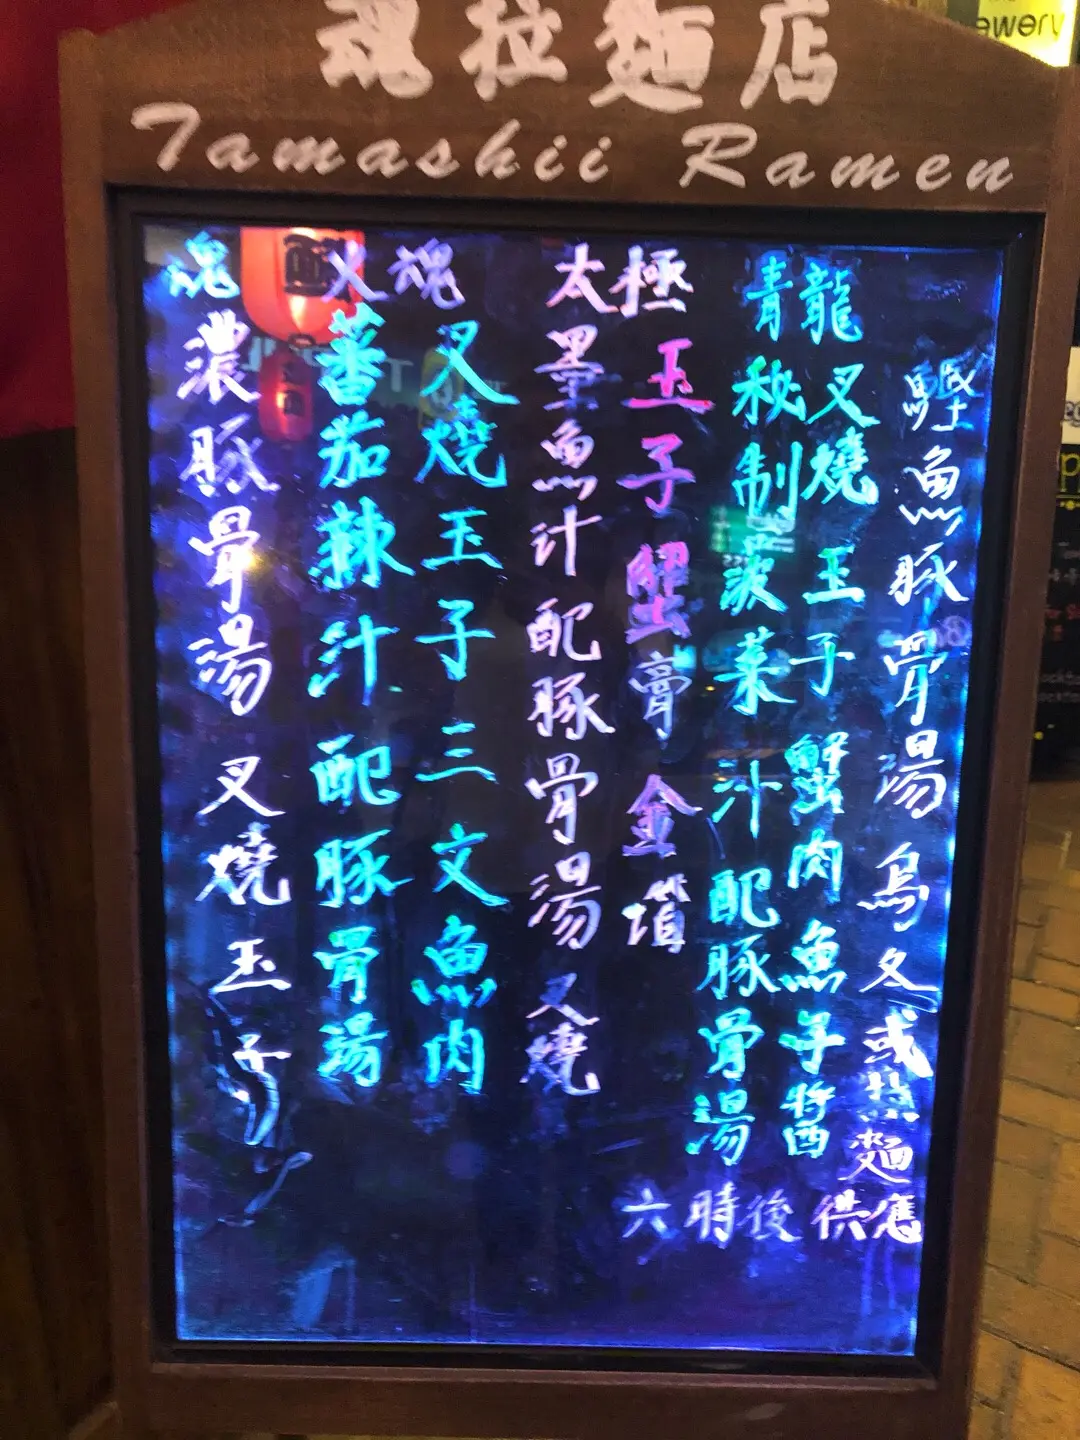 魂拉麵店
Tamashii Ramen
鰹魚豚骨湯 烏冬或 麵
龍 叉燒 玉子 蟹肉 魚子醬
青 秘制菠菜汁配豚骨湯
六時後供應
極 玉子蟹膏金
太 墨魚汁配豚骨湯 叉燒
魂 叉燒玉子三文魚肉
乂 蕃茄辣汁配豚骨湯
魂 濃豚骨湯 叉燒玉子